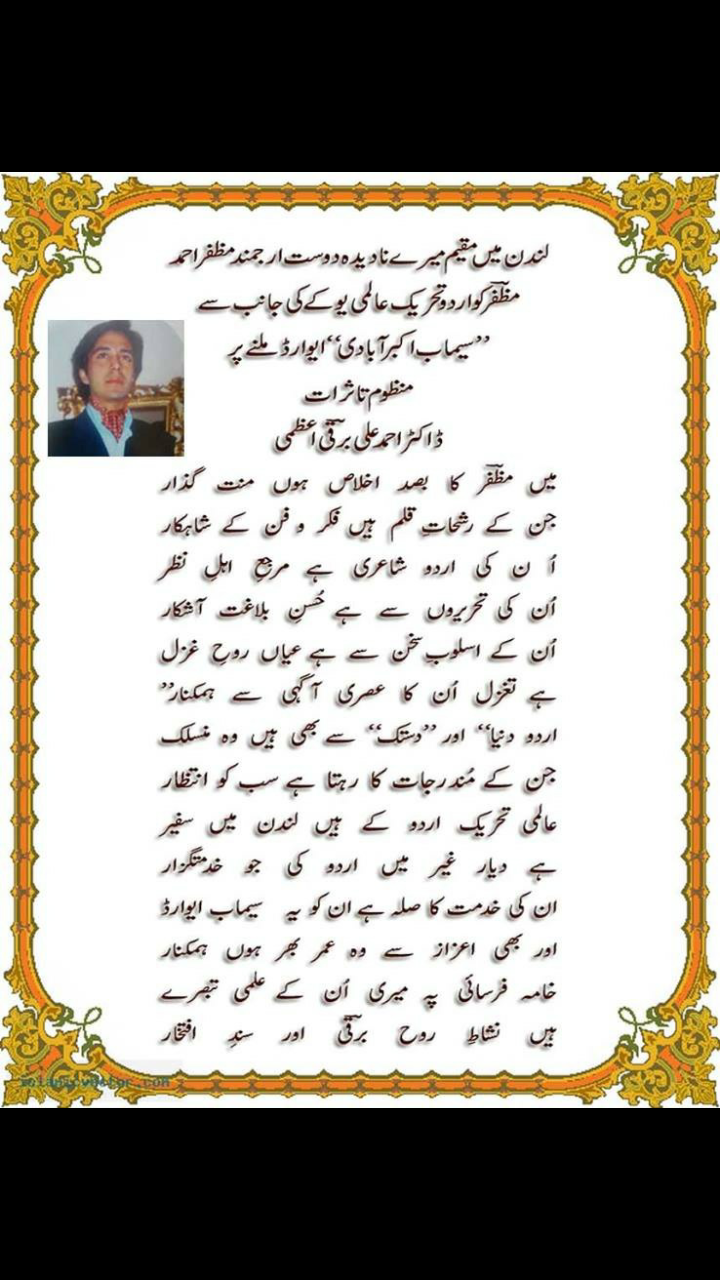 لندن میں مقیم میرے نادیدہ دوست ارجمند مظفر احمد
مظفرؔ کو اردو تحریک عالمی یوکے کی جانب سے
’’سیماب اکبرآبادی‘‘ ایوارڈ ملنے پر
منظوم تاثرات
ڈاکٹر احمد علی برقیؔ اعظمی
میں مظفرؔ کا بصد اخلاص ہوں منت گذار
جن کے رشحاتِ قلم ہیں فکر و فن کے شاہکار
اُ ن کی اردو شاعری ہے مرجعِ اہلِ نظر
اُن کی تحریروں سے ہے حُسنِ بلاغت آشکار
اُن کے اسلوبِ سخن سے ہے عیاں روحِ غزل
ہے تغزل اُن کا عصری آگہی سے ہمکنار’’
اردو دنیا‘‘ اور ’’دستک‘‘ سے بھی ہیں وہ منسلک
جن کے مُندرجات کا رہتا ہے سب کو انتظار
عالمی تحریک اردو کے ہیں لندن میں سفیر
ہے دیار غیر میں اردو کی جو خدمتگزار
ان کی خدمت کا صلہ ہے ان کو یہ سیماب ایوارڈ
اور بھی اعزاز سے وہ عمر بھر ہوں ہمکنار
خامہ فرسائی پہ میری اُن کے علمی تبصرے
ہیں نشاطِ روح برقیؔ اور سندِ افتخار